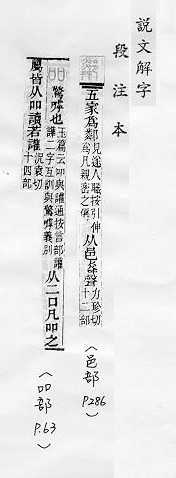 說文解字
段注本
五家為鄰見遂人職按引伸為凡親密之偁从邑粦聲力珍切十二部
(邑部 P286)
吅驚嘑也玉篇云吅與讙通按言部讙譁二字互訓與驚嘑義別从二口凡吅之
屬皆从吅讀若讙況袁切十四部
(吅部 P.63)